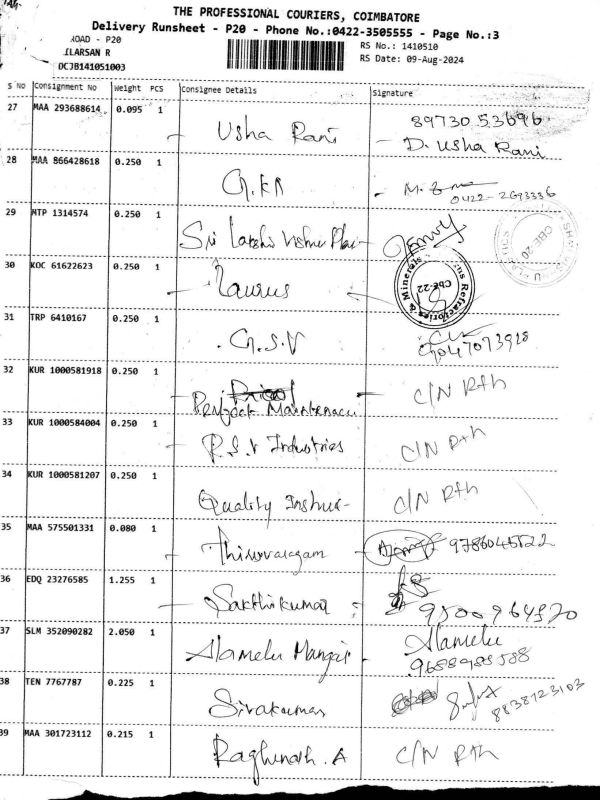 THE PROFESSIONAL COURIERS, COIMBATORE
Delivery Runsheet - P20 - Phone No.:0422-3505555 - Page No.:3
ROAD - P20
ILARSAN R
DCJB141051003
RS No.: 1410510
RS Date: 09-Aug-2024
S No Consignment No Weight PCS Consignee Details Signature
27 MAA 293688614 0.095 1 Usha Rani 8973053696
D. Usha Rani
28 MAA 866428618 0.250 1 0422-2693336
29 MTP 1314574 0.250 1 Sri Lakshi Vishnu
30 KOC 61622623 0.250 1 Taurus
Minerals Refractories
CBE-22
CBE-20
31 TRP 6410167 0.250 1 G.S.V 9047073928
32 KUR 1000581918 0.250 1 Project Maintenance C/N Rth
33 KUR 1000584004 0.250 1 P.S.V Industries C/N Rth
34 KUR 1000581207 0.250 1 Quality C/N Rth
35 MAA 575501331 0.080 1 Thiruvarangam
36 EDQ 23276585 1.255 1 Sakthikumar 9500964520
37 SLM 352090282 2.050 1 Alamelu Mangai Alamelu
9688985588
38 TEN 7767787 0.225 1 Sivakumar 8838123103
39 MAA 301723112 0.215 1 Raghunath . A C/N Rth